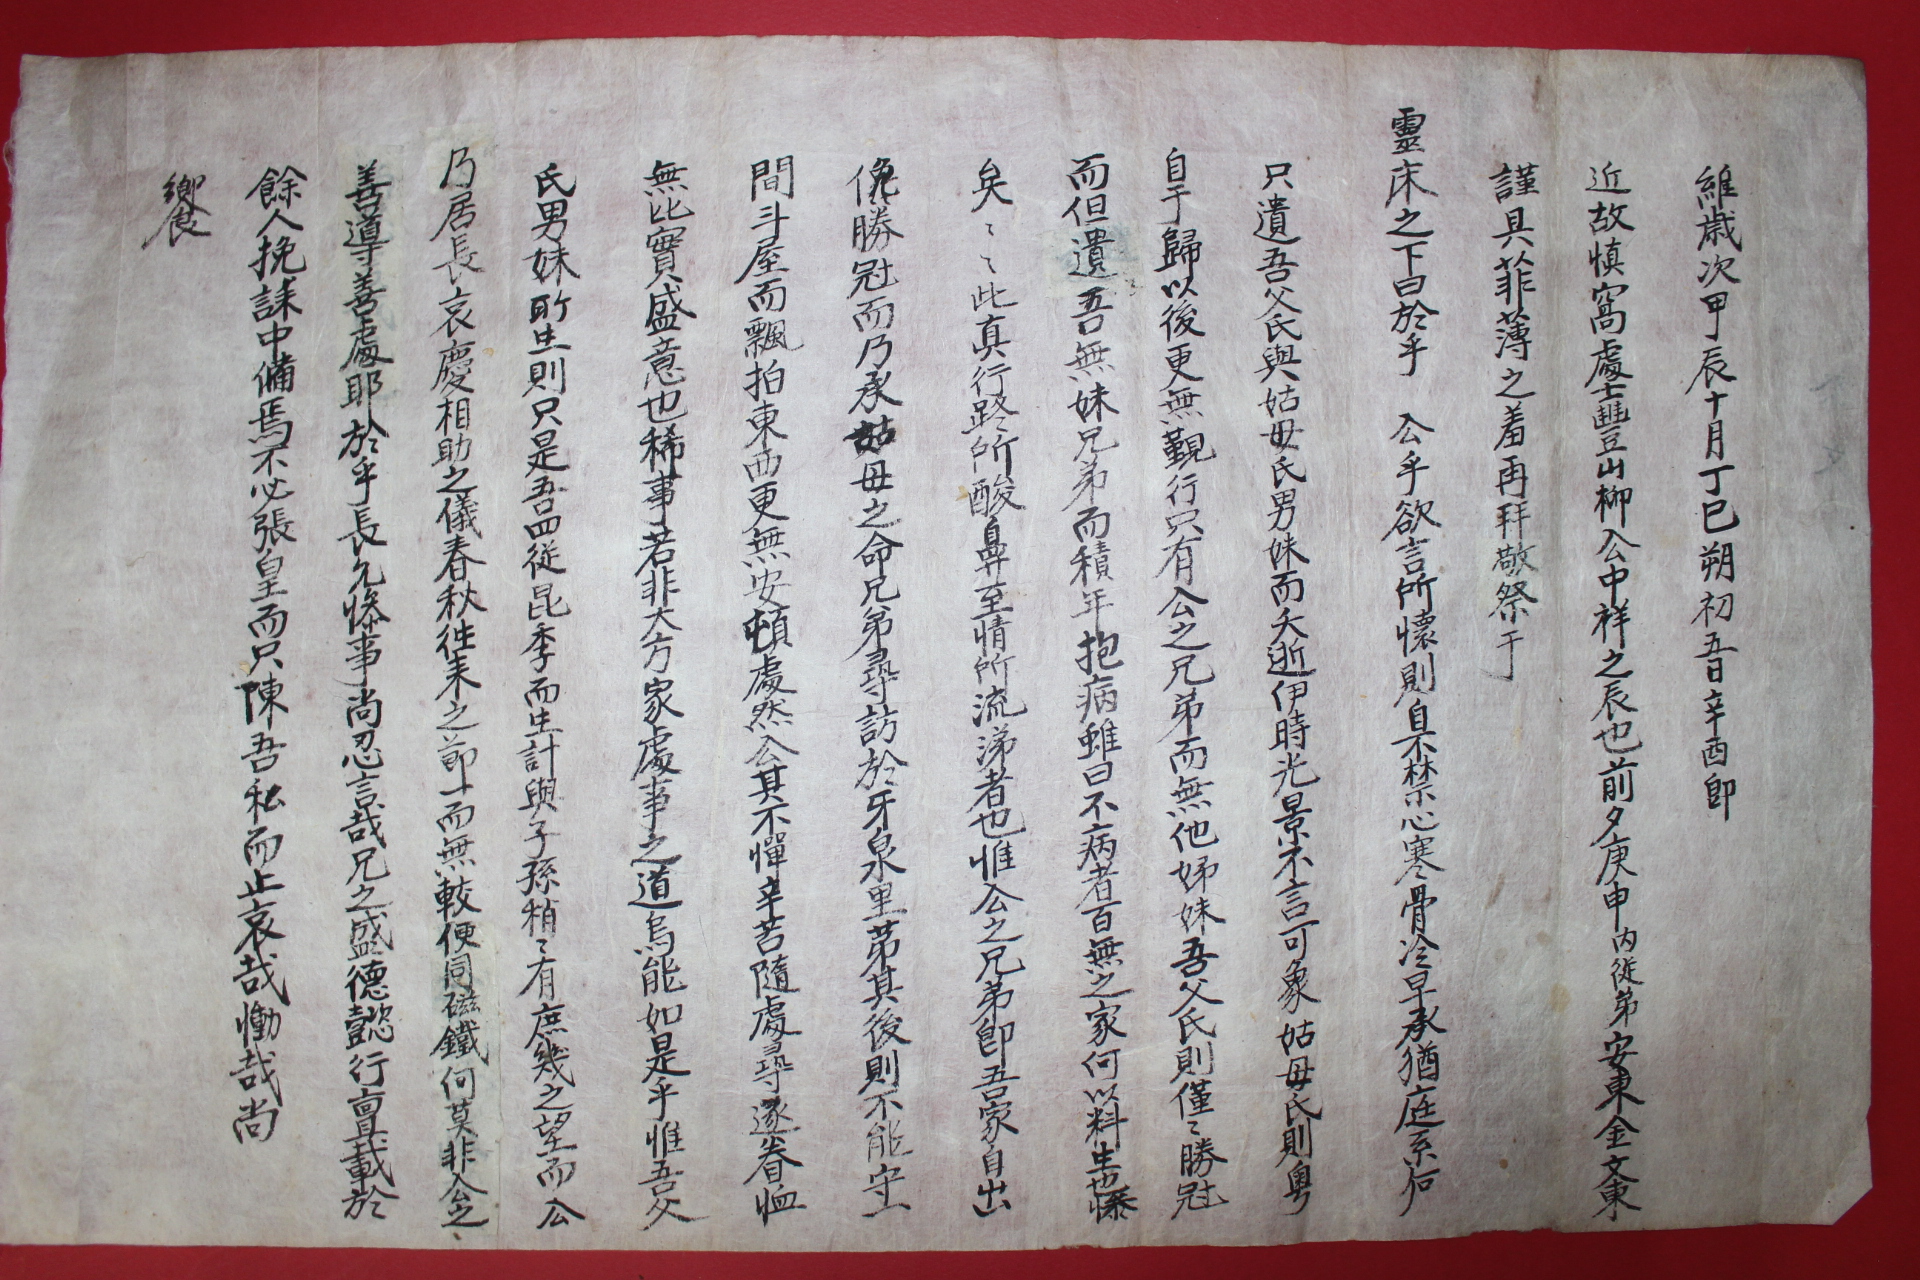 維歲次甲辰十月丁巳朔初五日辛酉卽
近故愼窩處士豐山柳公中祥之辰也前夕庚申內從弟安東金文東
謹具菲薄之羞再拜敬祭于
靈床之下曰於乎 公乎欲言所懷則自不禁心寒骨冷早承猶庭系后
只遺吾父氏與姑母氏男妹而夭逝伊時光景不言可象姑母氏則粤
自于歸以後更無覲行只有公之兄弟而無他姊妹吾父氏則僅〻勝冠
而但遺吾無妹兄弟而積年抱病雖曰不病者百無之家何以料生也慘
矣〻〻此真行路所酸鼻至情所流涕者也惟公之兄弟卽吾家自出
俛勝冠而乃承姑母之命兄弟尋訪於牙泉里第其後則不能守一
間斗屋而飄拍東西更無安頓處然公其不憚辛苦隨處尋逐眷恤
無比實盛意也稀事若非大方家處事之道烏能如是乎惟吾父
氏男妹所生則只是吾四從昆季而生計與子孫稍〻有庶幾之望而公
乃居長哀慶相助之儀春秋徃来之節一而無較便同磁鐵何莫非公之
善導善處耶於乎長兄慘事尚忍言哉兄之盛德懿行亶載於
餘人挽誄中備焉不必張皇而只陳吾私而止哀哉慟哉尚
饗